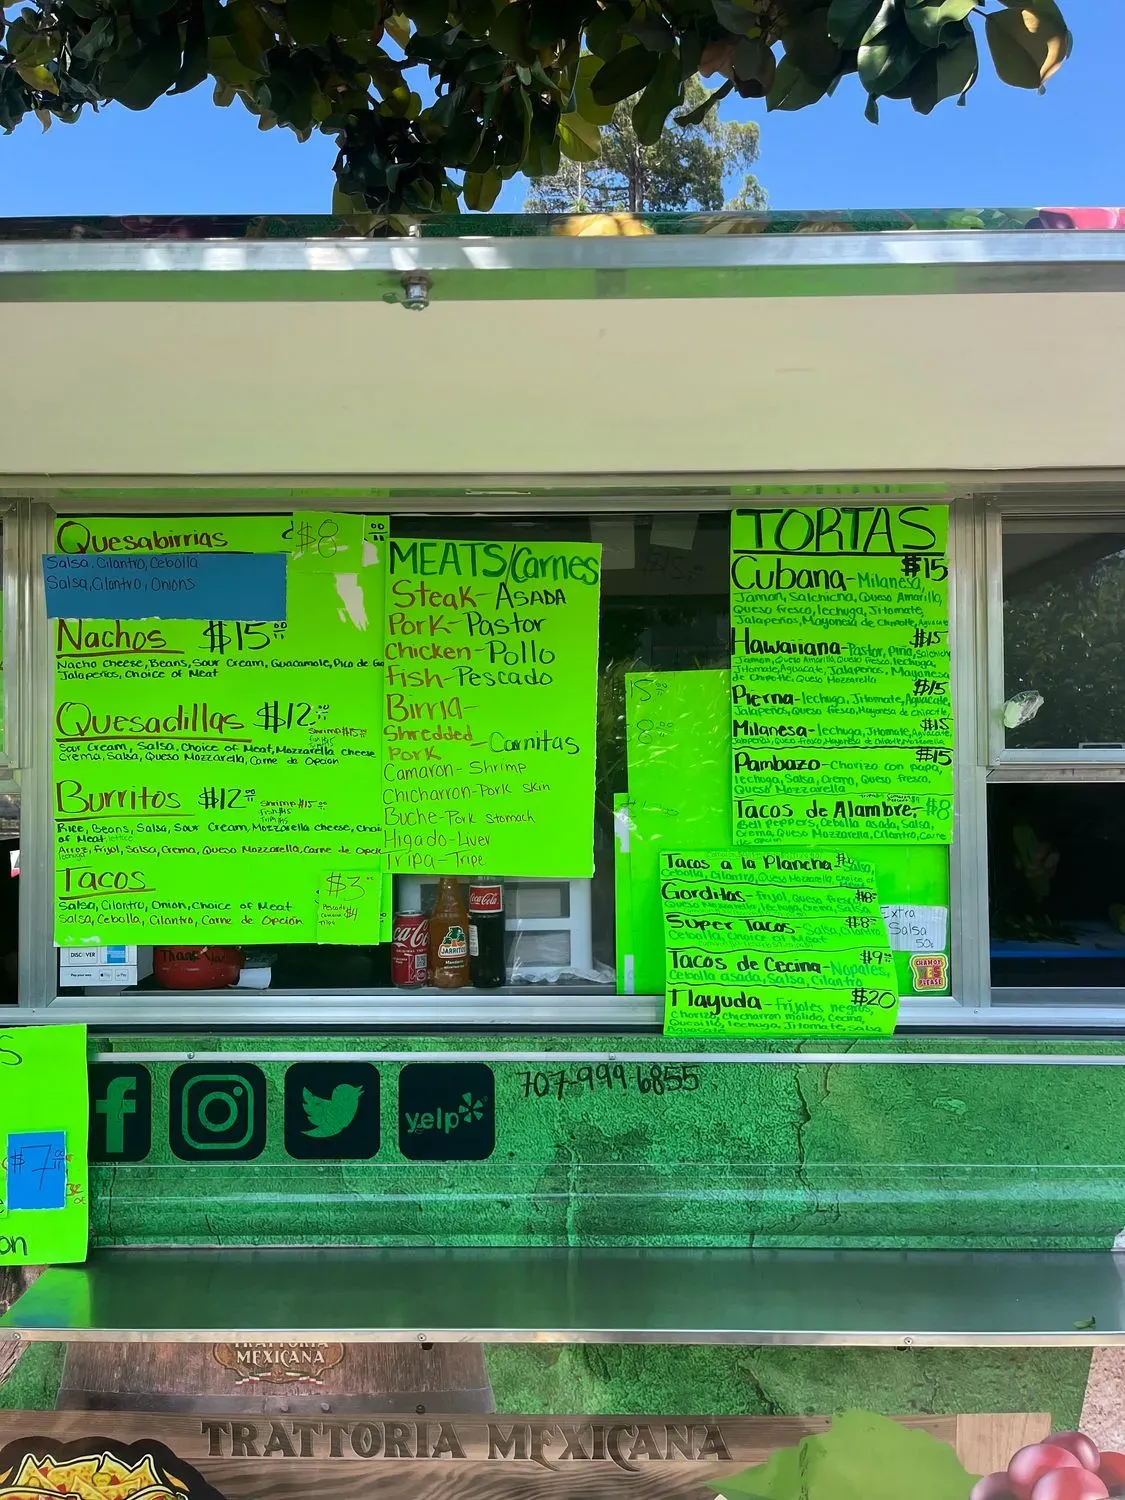 Quesabirrias $8
Salsa, Cilantro, Cebolla
Salsa, Cilantro, Onions
Nachos $15.00
Nacho Cheese, Beans, Sour Cream, Guacamole, Pico de
Jalapeños, Choice of Meat
Quesadillas $12.00
Shrimp $15.00
Sour Cream, Salsa, Choice of Meat, Mozzarella cheese
Crema, Salsa, Queso Mozzarella, Carne de Opcion
Burritos $12.00
Shrimp $15.00
fish $15
Rice, Beans, Salsa, Sour Cream, Mozzarella cheese,
of Meat, lettuce
Arroz, frijol, Salsa, Crema, Queso Mozzarella, Carne de
lechuga
Tacos $3.00
Salsa, Cilantro, Onion, Choice of Meat
Salsa, Cebolla, Cilantro, Carne de Opción
Pescado
$4
DISCOVER
Thank You
MEATS/Carnes
Steak-ASADA
Pork-Pastor
Chicken-Pollo
Fish-Pescado
Birria-
Shredded
Pork -Carnitas
Camaron- Shrimp
Chicharron-Pork skin
Buche-Pork stomach
Higado-Liver
Tripa-Tripe
Coca-Cola
Coca-Cola
JARRITOS
TORTAS
Cubana-Milanesa, $15
Jamon, Salchicha, Queso Amarillo,
Queso fresco, lechuga, Jitomate,
Jalapeños, Mayonesa de Chipotle, Aguacate
Hawaiiana-Pastor, Piña, Salchicha $15
Jamon, Queso Amarillo, Queso fresco, lechuga,
Jitomate, Aguacate, Jalapeños, Mayonesa
de Chipotle, Queso Mozzarella
Pierna-lechuga, Jitomate, Aguacate, $15
Jalapeños, Queso fresco, Mayonesa de Chipotle,
Milanesa-lechuga, Jitomate, Aguacate, $15
Jalapeños, Queso fresco, Mayonesa de Chipotle,
Pambazo-Chorizo con papa, $15
lechuga, Salsa, Crema, Queso fresco,
Queso Mozzarella
Tacos de Alambre- $8
Bell peppers, Cebolla asada, Salsa,
Crema, Queso Mozzarella, Cilantro, Carne
de
15
8
Tacos a la Plancha Salsa,
Cebolla, Cilantro, Queso Mozzarella, choice of
Gorditas-Frijol, Queso Fresco $8
Queso Mozzarella, lechuga, Crema, Salsa
Super Tacos-Salsa, Cilantro $8
Cebolla, Choice of Meat
Tacos de Cecina-Nopales, $9
Cebolla asada, Salsa, Cilantro
Tlayuda-Frijoles negros, $20
Chorizo, Chicharron molido, Cecina,
Quesillo, lechuga, Jitomate, Salsa
Aguacate
Extra
Salsa
50¢
CHAMOY
YES
PLEASE
S
$7.00
on
f
yelp
707-999-6855
TRATTORIA
MEXICANA
TRATTORIA MEXICANA